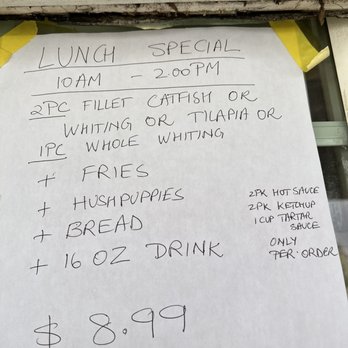 LUNCH SPECIAL
10AM - 2:00PM
2PC FILLET CATFISH OR
WHITING OR TILAPIA OR
1PC WHOLE WHITING
+ FRIES
+ HUSHPUPPIES
+ BREAD
+ 16 OZ DRINK
2PK HOT SAUCE
2PK KETCHUP
1 CUP TARTAR
SAUCE
ONLY
PER ORDER
$ 8.99